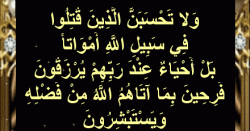 وَلَا تَحْسَبَنَّ الَّذِينَ قُتِلُوا
فِي سَبِيلِ اللَّهِ أَمْوَاتاً
بَلْ أَحْيَاءٌ عِنْدَ رَبِّهِمْ يُرْزَقُونَ
فَرِحِينَ بِمَا آتَاهُمُ اللَّهُ مِنْ فَضْلِهِ
وَيَسْتَبْشِرُونَ